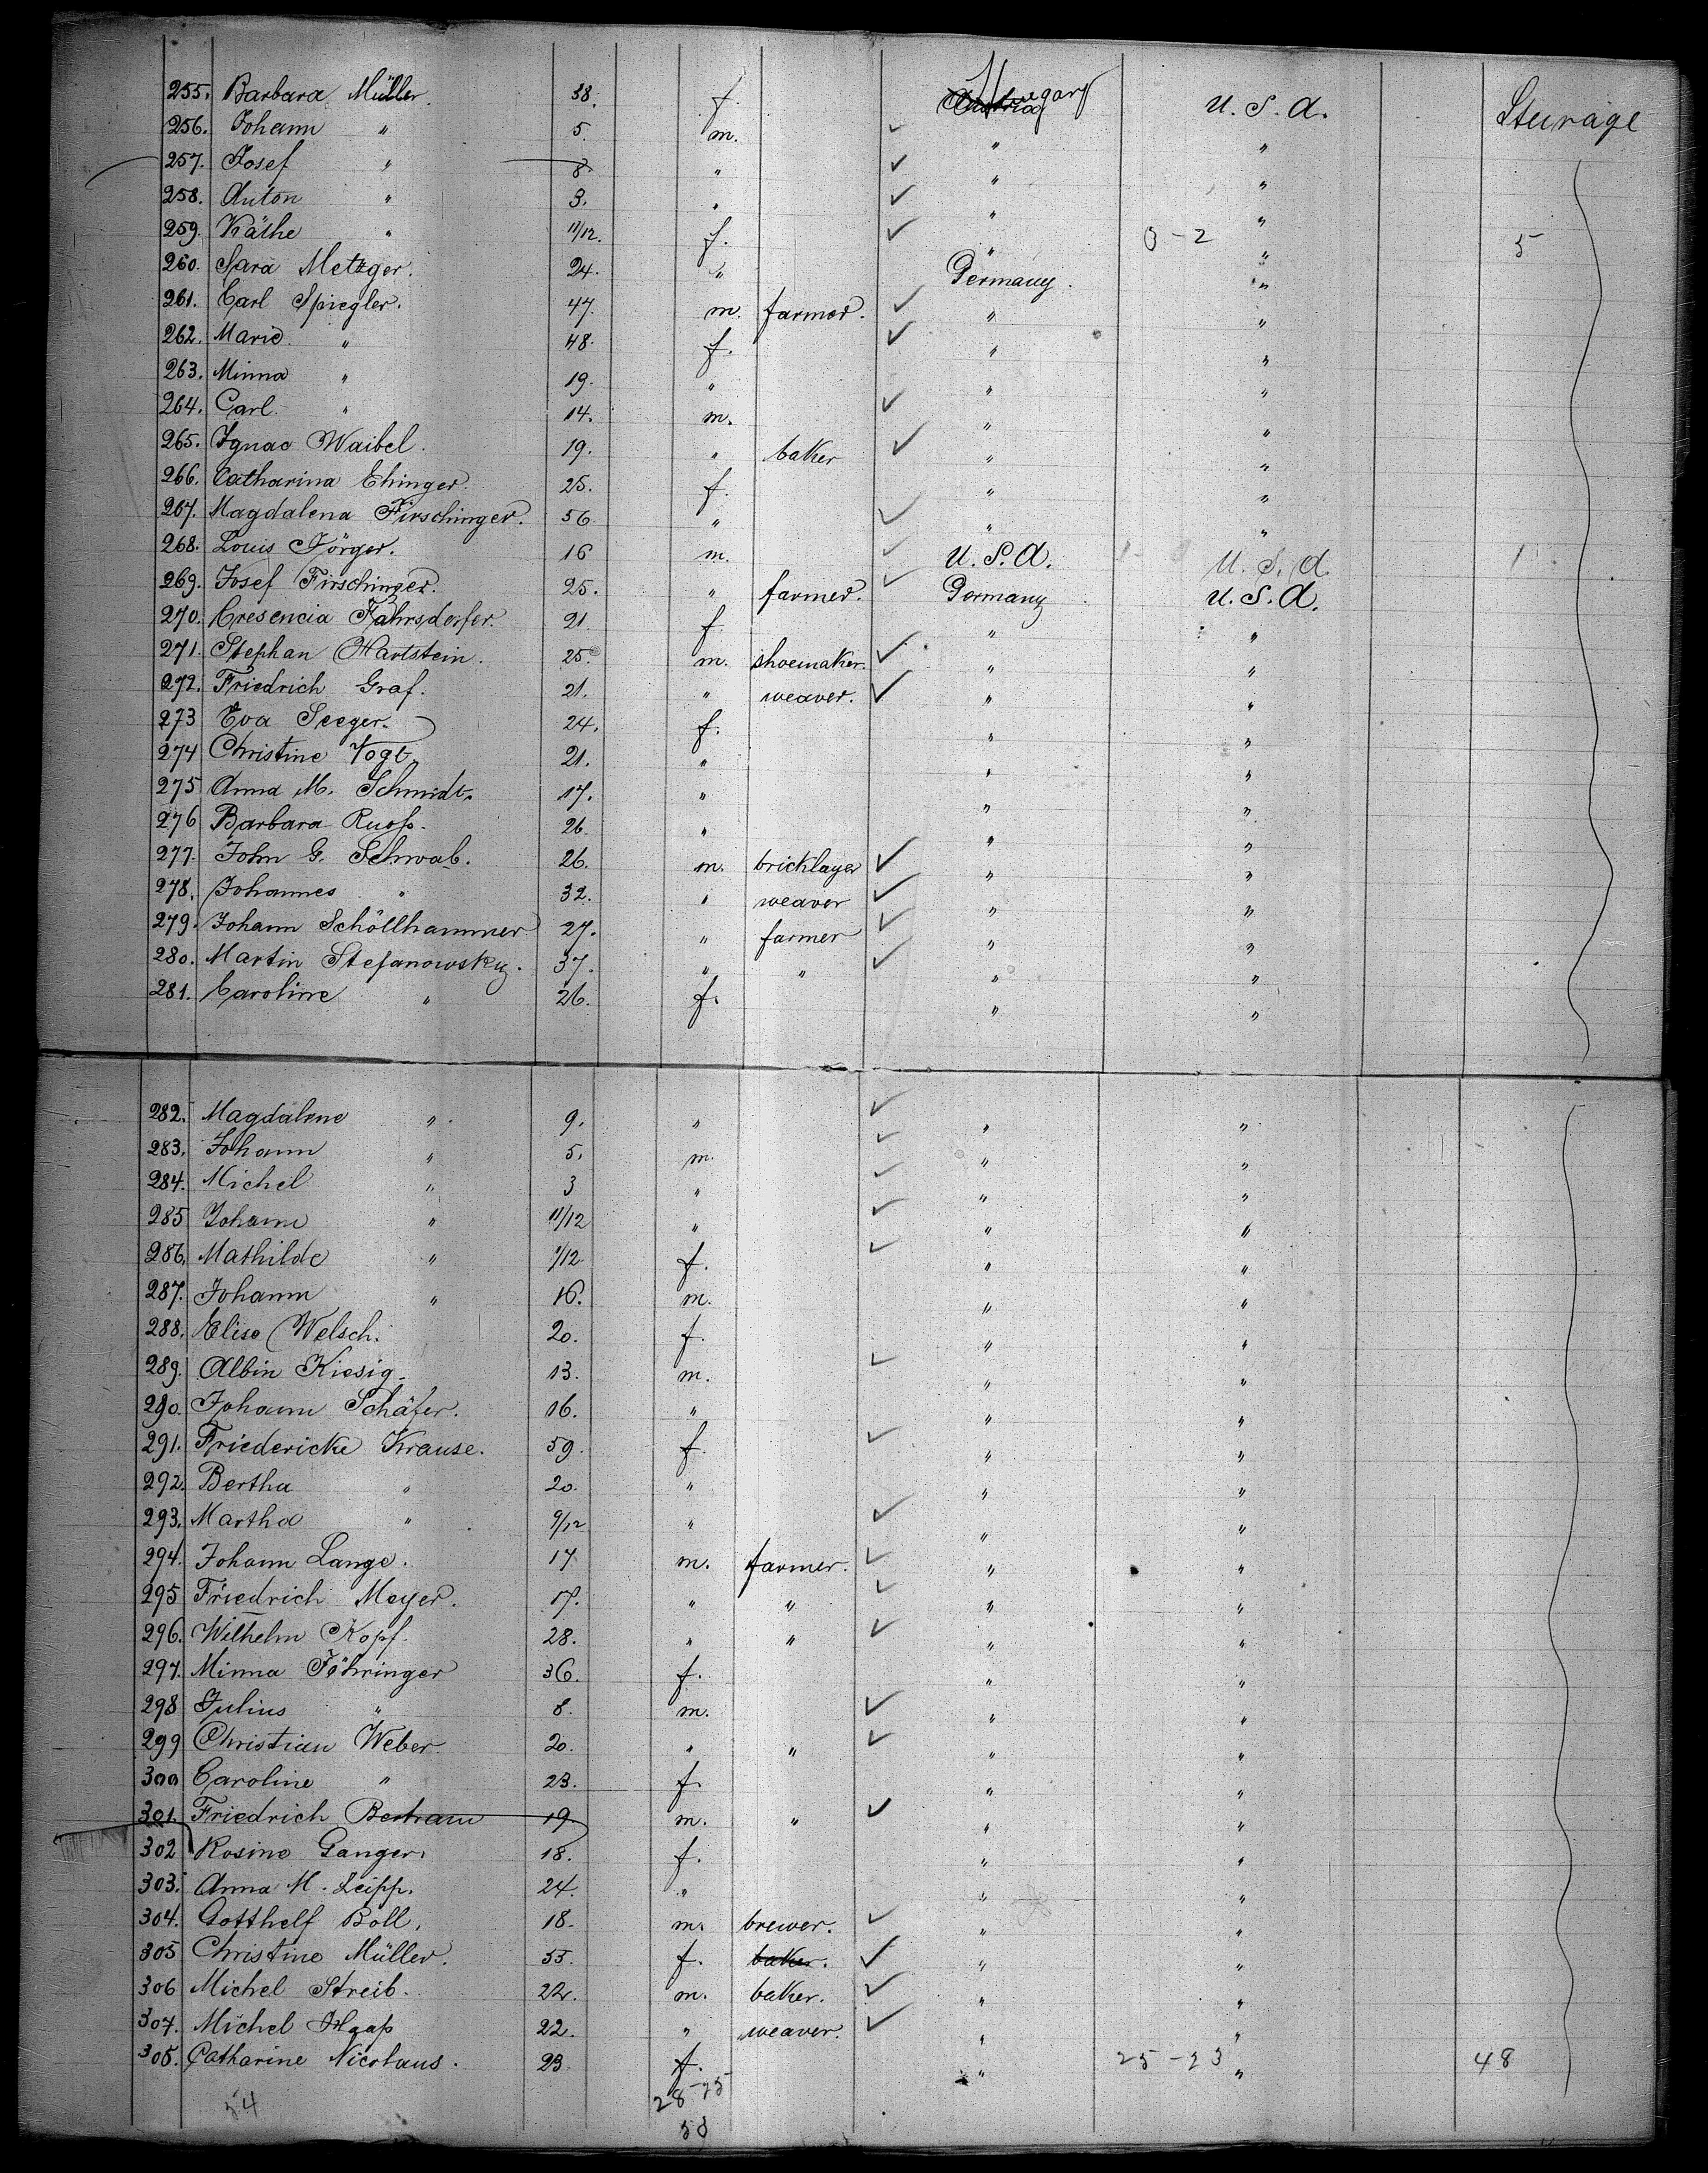 255. Barbara Müller. 38. f. Austria Hungary U. S. A. Steurage
256. Johann " 5. m. " "
257. Josef " 8. " " "
258. Anton " 3. " " "
259. Käthe " 11/12. f. " 3 - 2 " 5
260. Sara Metzger. 24. " Germany. "
261. Carl Spiegler. 47. m. farmer. " "
262. Marie " 48. f. " "
263. Minna " 19. " " "
264. Carl " 14. m. " "
265. Ignac Waibel. 19. " baker " "
266. Catharina Ehinger. 25. f. " "
267. Magdalena Firschinger. 56 " " "
268. Louis Jörger. 16 m. U. S. A. U. S. A. 1
269. Josef Firschinger. 25. " farmer. Germany U. S. A.
270. Cresencia Fahrsdorfer. 21 f. " "
271. Stephan Hartstein. 25. m. shoemaker. " "
272. Friedrich Graf. 21. " weaver. " "
273 Eva Seeger. 24. f. " "
274 Christine Vogt. 21. " " "
275 Anna M. Schmidt. 17. " " "
276 Barbara Ruoß. 26. " " "
277. John G. Schwab. 26. m. bricklayer " "
278. Johannes " 32. " weaver " "
279. Johann Schöllhammer 27. " farmer " "
280. Martin Stefanowsky. 37. " " " "
281. Caroline " 26. f. " "
282. Magdalene " 9. " " "
283. Johann " 5. m. " "
284. Michel " 3 " " "
285 Johann " 11/12 " " "
286. Mathilde " 1/12 f. " "
287. Johann " 16. m. " "
288. Elise Welsch. 20. f. " "
289. Albin Kiesig. 13. m. " "
290. Johann Schäfer. 16. " " "
291. Friedericke Krause. 59. f. " "
292. Bertha " 20. " " "
293. Martha " 9/12 " " "
294. Johann Lange. 17 m. farmer. " "
295 Friedrich Meyer. 17. " " " "
296. Wilhelm Kopf. 28. " " " "
297. Minna Föhringer 36. f. " "
298 Julius " 8. m. " "
299 Christian Weber. 20. " " " "
300 Caroline " 23. f. " "
301. Friedrich Bertram 19. m. " " "
302 Rosine Ganger. 18. f. " "
303. Anna M. Leipp. 24. " " "
304. Gotthelf Boll. 18. m. brewer. " "
305 Christine Müller. 55. f. baker. " "
306 Michel Streib. 22. m. baker. " "
307. Michel Haap 22. " weaver. " "
308. Catharine Nicolaus. 23. f. " 25 - 23 " 48
54 28-25
53